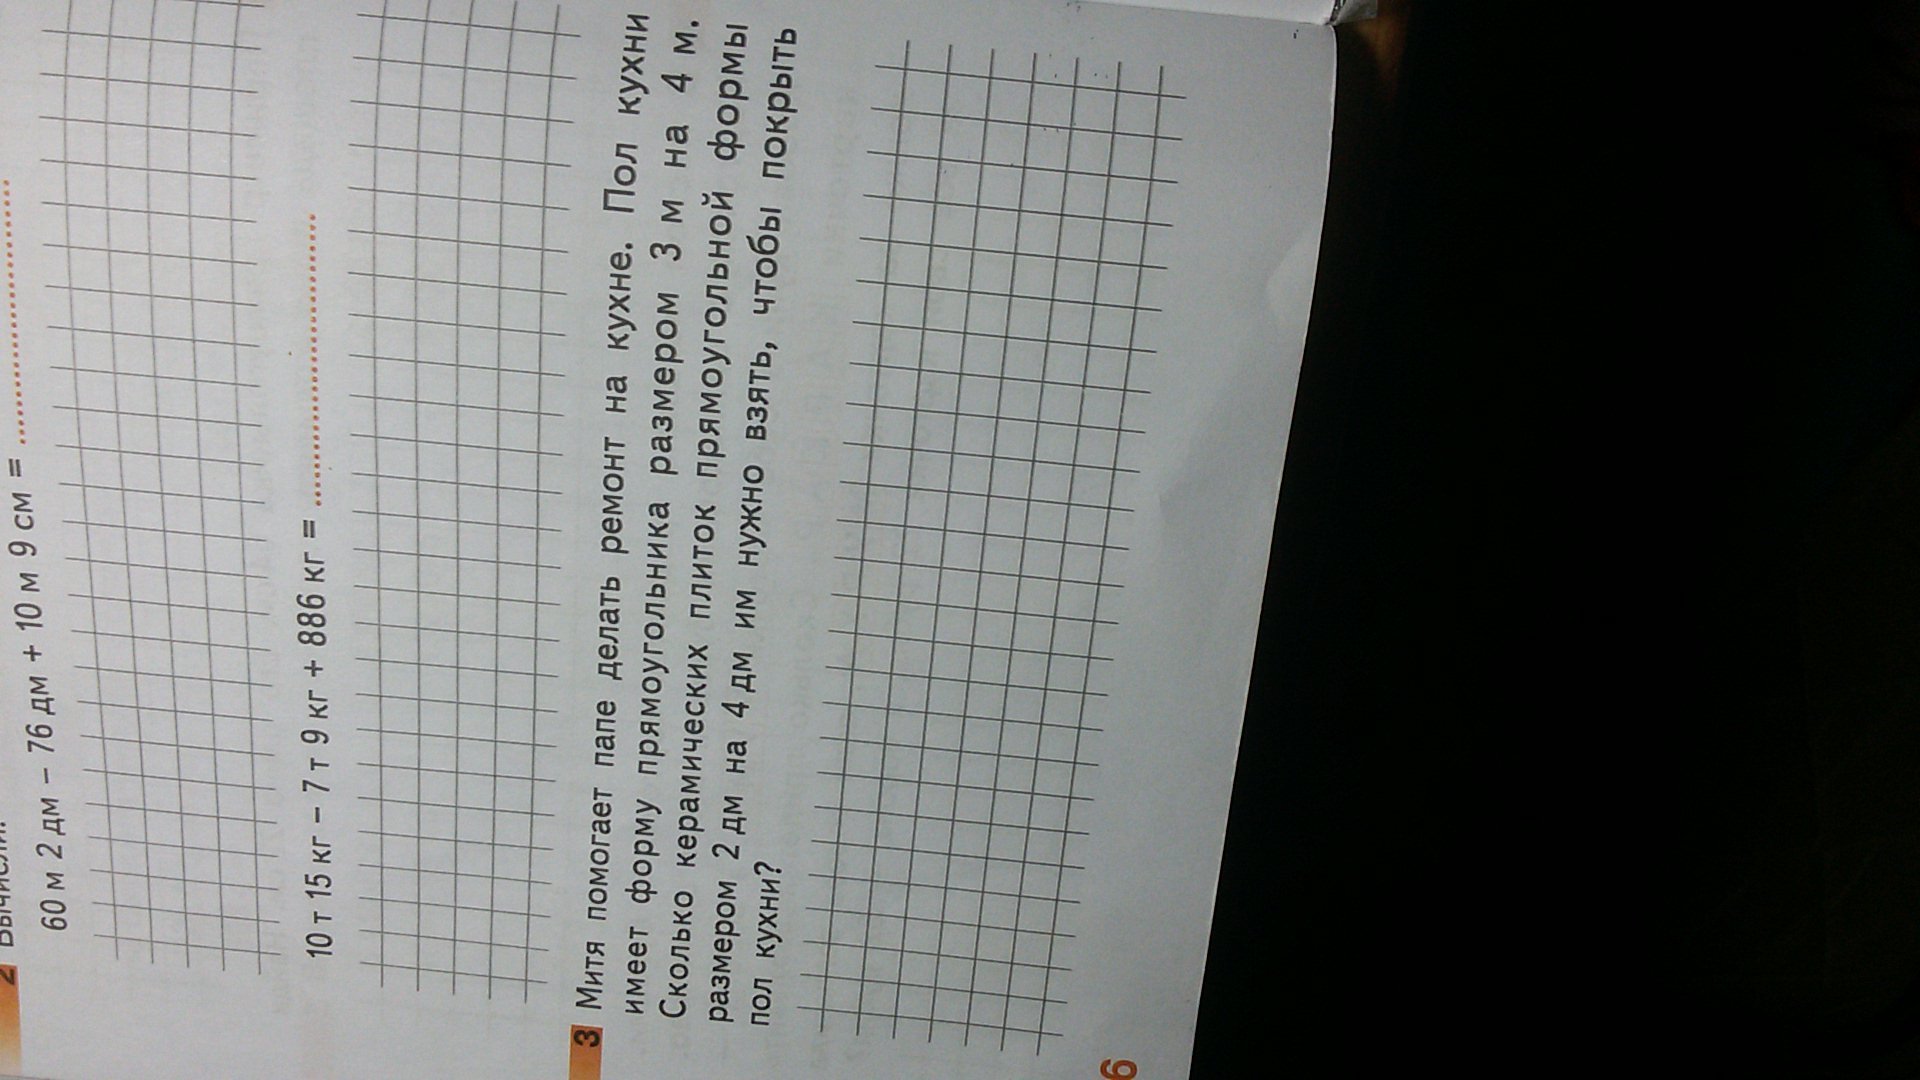 2 Вычисли.
60 м 2 дм – 76 дм + 10 м 9 см =
10 т 15 кг – 7 т 9 кг + 886 кг =
3 Митя помогает папе делать ремонт на кухне. Пол кухни
имеет форму прямоугольника размером 3 м на 4 м.
Сколько керамических плиток прямоугольной формы
размером 2 дм на 4 дм им нужно взять, чтобы покрыть
пол кухни?
6